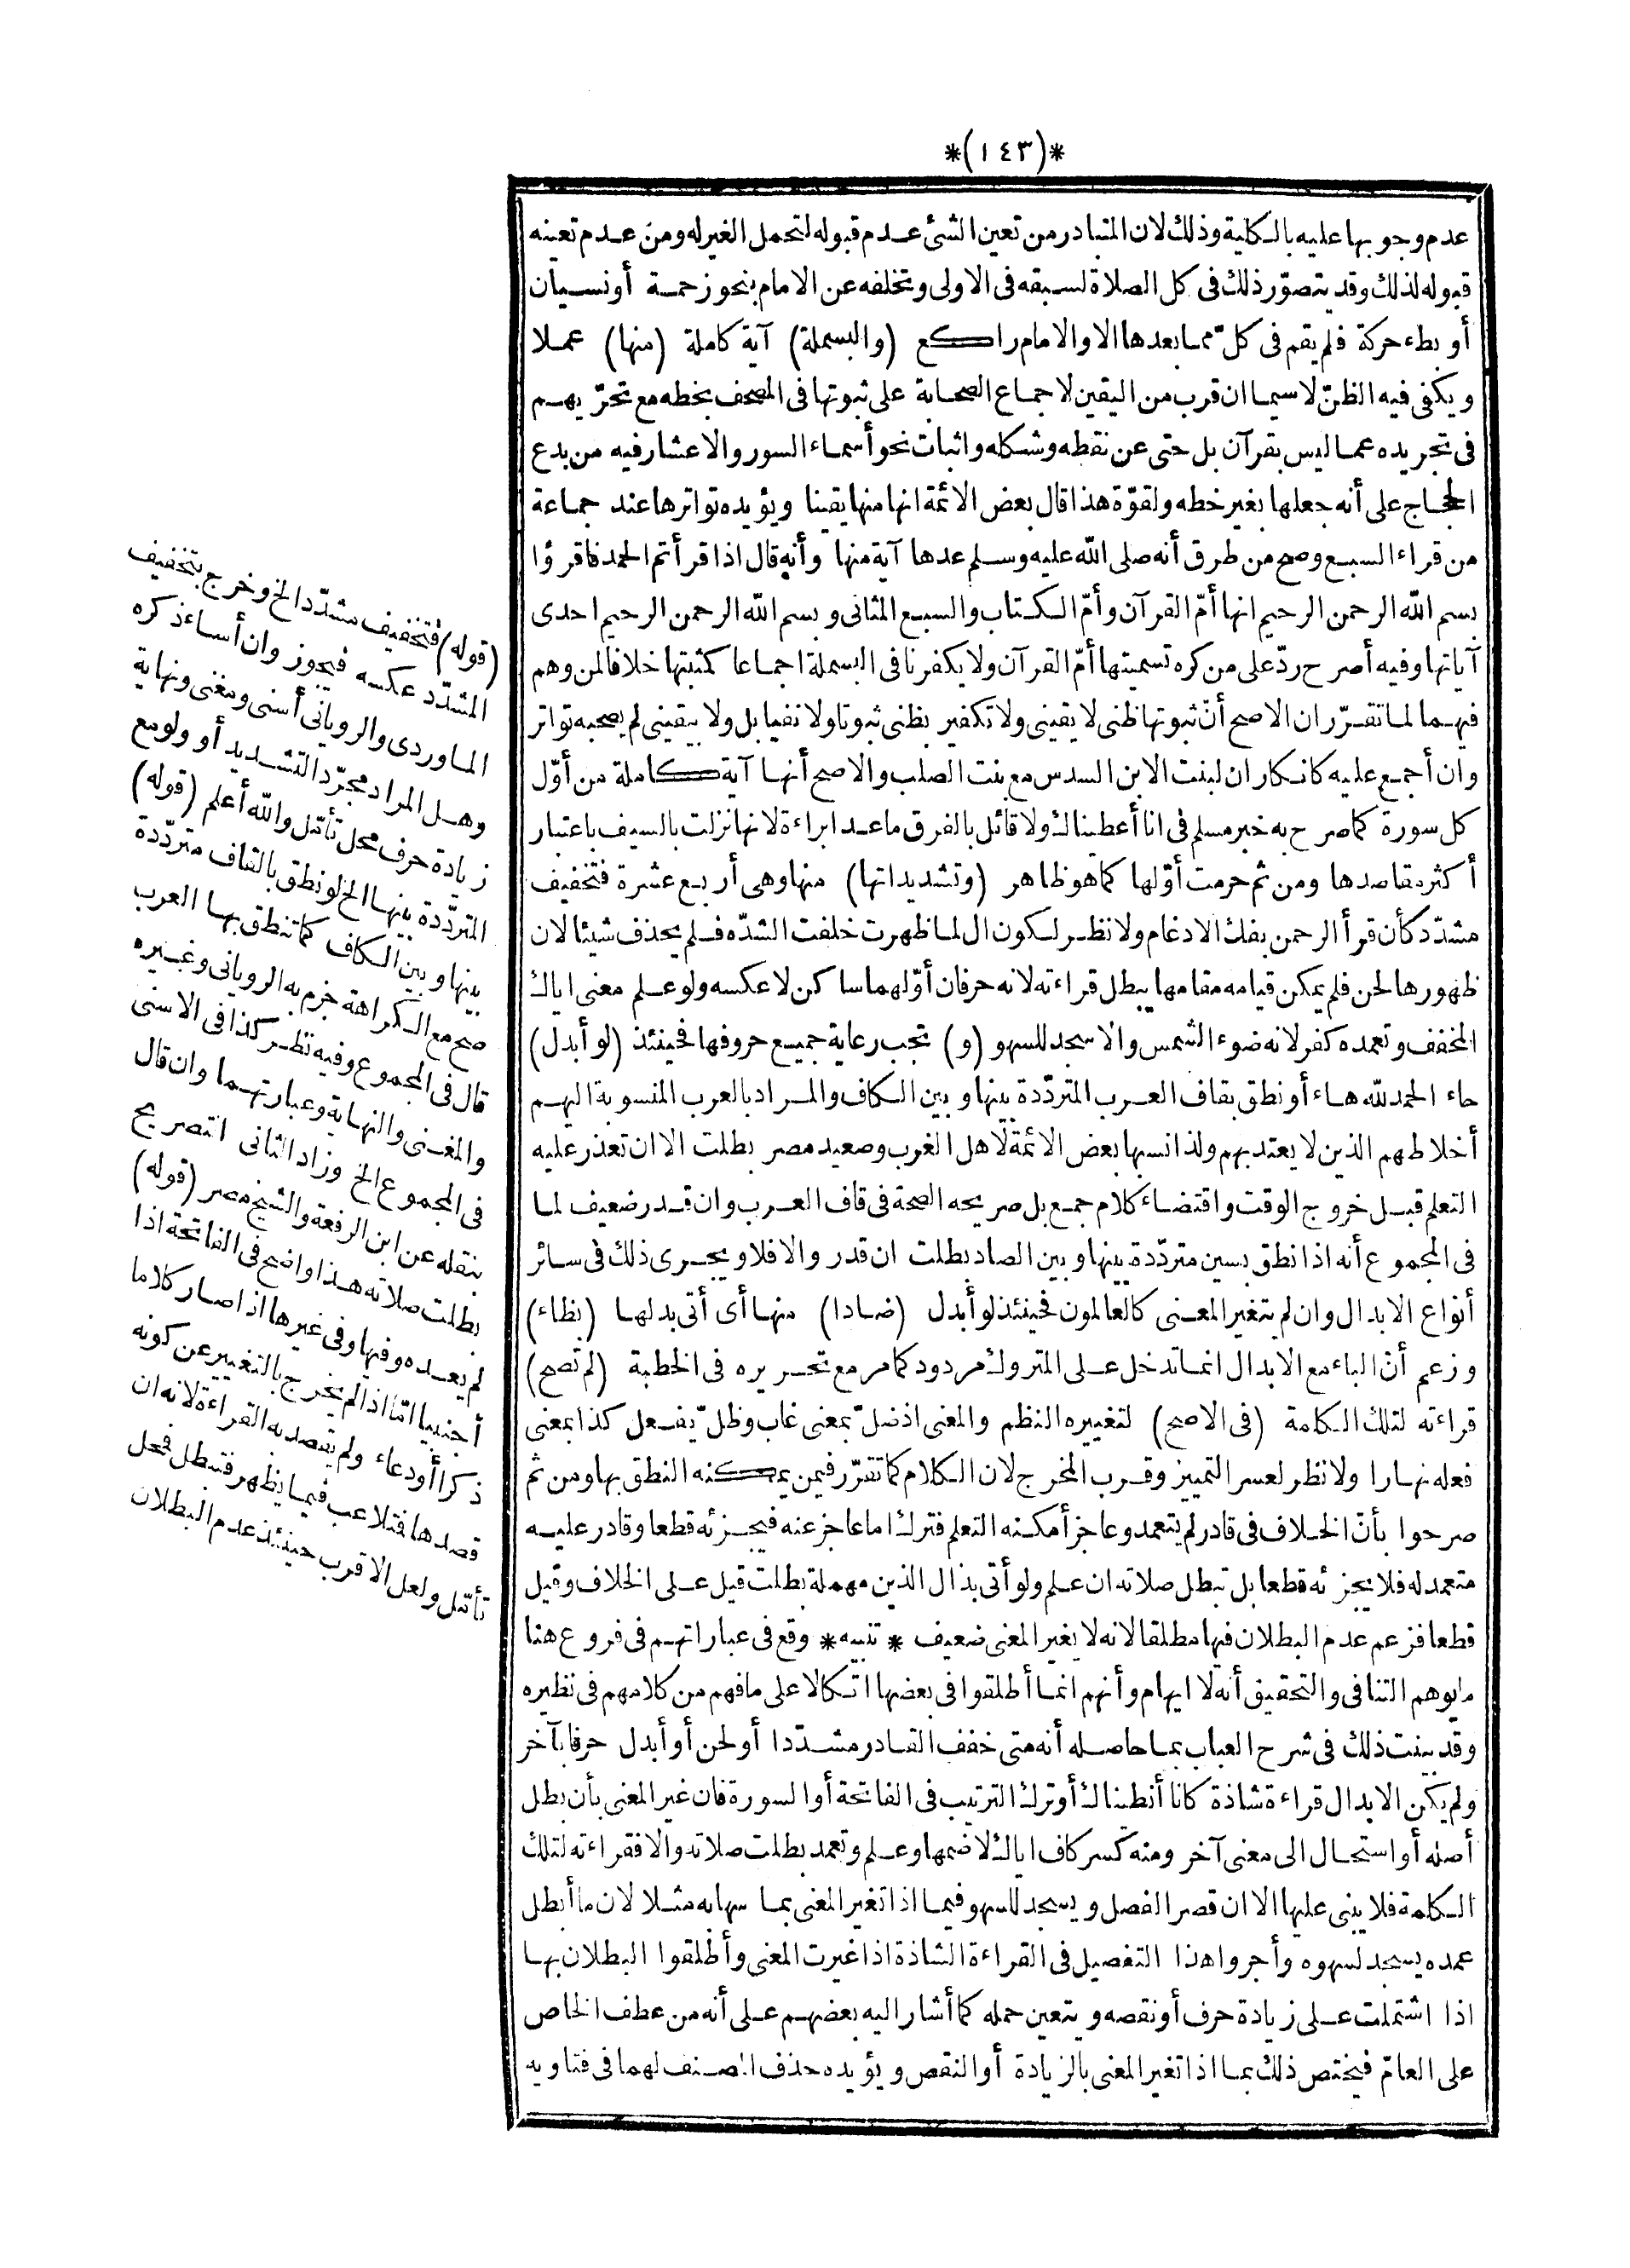 *(١٤٣)*
عدم وجوبها عليه بالكلية وذلك لان المتبادر من تعين الشئ عدم قبوله لتحمل الغير له ومن عدم تعينه
قبوله لذلك وقد يتصوّر ذلك فى كل الصلاة لسبقه فى الاولى وتخلفه عن الامام بنحو زحمة أو نسيان
أو بطء حركة فلم يقم فى كلّ مما بعدها الا والامام راكع (والبسملة) آية كاملة (منها) عملا
ويكفى فيه الظنّ لا سيما ان قرب من اليقين لاجماع الصحابة على ثبوتها فى المصحف بخطه مع تحرّيهم
فى تجريده عما ليس بقرآن بل حتى عن نقطه وشكله واثبات نحو أسماء السور والاعشار فيه من بدع
الحجاج على أنه جعلها بغير خطه ولقوّة هذا قال بعض الائمة انها منها يقينا ويؤيده تواترها عند جماعة
من قراء السبع وصح من طرق أنه صلى الله عليه وسلم عدها آية منها وأنه قال اذا قرأتم الحمد فاقرؤا
بسم الله الرحمن الرحيم انها أمّ القرآن وأمّ الكتاب والسبع المثانى وبسم الله الرحمن الرحيم احدى
آياتها وفيه أصرح ردّ على من كره تسميتها أمّ القرآن ولا يكفر نافى البسملة اجماعا كمثبتها خلافا لمن وهم
فيهما لما تقرّر ان الاصح أنّ ثبوتها ظنى لا يقينى ولا تكفير بظنى ثبوتا ولا نفيا بل ولا بيقينى لم يصحبه تواتر
وان أجمع عليه كانكار ان لبنت الابن السدس مع بنت الصلب والاصح أنها آية كاملة من أوّل
كل سورة كما صرح به خبر مسلم فى انا أعطيناك ولا قائل بالفرق ما عدا براءة لانها نزلت بالسيف باعتبار
أكثر مقاصدها ومن ثم حرمت أوّلها كما هو ظاهر (وتشديداتها) منها وهى أربع عشرة فتخفيف
مشدّد كأن قرأ الرحمن بفك الادغام ولا نظر لكون ال لما ظهرت خلفت الشدّه فلم يحذف شيئا لان
ظهورها لحن فلم يمكن قيامه مقامها يبطل قراءته لانه حرفان أوّلهما ساكن لا عكسه ولو علم معنى اياك
المخفف وتعمده كفر لانه ضوء الشمس والا سجد للسهو (و) تجب رعاية جميع حروفها فحينئذ (لو أبدل)
حاء الحمد لله هاء أو نطق بقاف العرب المتردّدة بينها وبين الكاف والمراد بالعرب المنسوبة اليهم
أخلاطهم الذين لا يعتد بهم ولذا نسبها بعض الائمة لاهل الغرب وصعيد مصر بطلت الا ان تعذر عليه
التعلم قبل خروج الوقت واقتضاء كلام جمع بل صريحه الصحة فى قاف العرب وان قدر ضعيف لما
فى المجموع أنه اذا نطق بسين متردّدة بينها وبين الصاد بطلت ان قدر والا فلا ويجرى ذلك فى سائر
أنواع الابدال وان لم يتغير المعنى كالعالمون فحينئذ لو أبدل (ضادا) منها أى أتى بدلها (بظاء)
وزعم أنّ الباء مع الابدال انما تدخل على المتروك مردود كما مر مع تحريره فى الخطبة (لم تصح)
قراءته لتلك الكلمة (فى الاصح) لتغييره النظم والمعنى اذ ضلّ بمعنى غاب وظلّ يفعل كذا بمعنى
فعله نهارا ولا نظر لعسر التمييز وقرب المخرج لان الكلام كما تقرّر فيمن يمكنه النطق بها ومن ثم
صرحوا بأنّ الخلاف فى قادر لم يتعمد وعاجز أمكنه التعلم فترك اما عاجز عنه فيجزئه قطعا وقادر عليه
متعمد له فلا يجزئه قطعا بل تبطل صلاته ان علم ولو أتى بذال الذين مهملة بطلت قيل على الخلاف وقيل
قطعا فزعم عدم البطلان فيها مطلقا لانه لا يغير المعنى ضعيف * تنبيه * وقع فى عباراتهم فى فروع هنا
ما يوهم التنافى والتحقيق أنه لا ايهام وأنهم انما أطلقوا فى بعضها اتكالا على ما فهم من كلامهم فى نظيره
وقد بينت ذلك فى شرح العباب بما حاصله أنه متى خفف القادر مشدّدا أو لحن أو أبدل حرفا بآخر
ولم يكن الابدال قراءة شاذة كانا أنطيناك أو ترك الترتيب فى الفاتحة أو السورة فان غير المعنى بأن بطل
أصله أو استحال الى معنى آخر ومنه كسر كاف اياك لا ضمها وعلم وتعمد بطلت صلاته والا فقراءته لتلك
الكلمة فلا يبنى عليها الا ان قصر الفصل ويسجد للسهو فيما اذا تغير المعنى بما سها به مثلا لان ما أبطل
عمده يسجد لسهوه وأجروا هذا التفصيل فى القراءة الشاذة اذا غيرت المعنى وأطلقوا البطلان بها
اذا اشتملت على زيادة حرف أو نقصه ويتعين حمله كما أشار اليه بعضهم على أنه من عطف الخاص
على العامّ فيختص ذلك بما اذا تغير المعنى بالزيادة أو النقص ويؤيده حذف المصنف لهما فى فتاويه
(قوله) فتخفيف مشدّد الخ وخرج بتخفيف
المشدّد عكسه فيجوز وان أساء ذكره
الماوردى والرويانى أسنى ومغنى ونهاية
وهل المراد مجرّد التشديد أو ولو مع
زيادة حرف محل تأمّل والله أعلم (قوله)
المتردّدة بينها الخ لو نطق بالقاف متردّدة
بينها وبين الكاف كما تنطق بها العرب
صح مع الكراهة جزم به الرويانى وغيره
قال فى المجموع وفيه نظر كذا فى الاسنى
والمغنى والنهاية وعبارتهما وان قال
فى المجموع الخ وزاد الثانى التصريح
بنقله عن ابن الرفعة والشيخ نصر (قوله)
بطلت صلاته هذا واضح فى الفاتحة اذا
لم يعده وفيها وفى غيرها اذا صار كلاما
أجنبيا امّا اذا لم يخرج بالتغيير عن كونه
ذكرا أو دعاء ولم يقصد به القراءة لانه ان
قصدها فتلاعب فيما يظهر فتبطل فمحل
تأمّل ولعل الاقرب حينئذ عدم البطلان